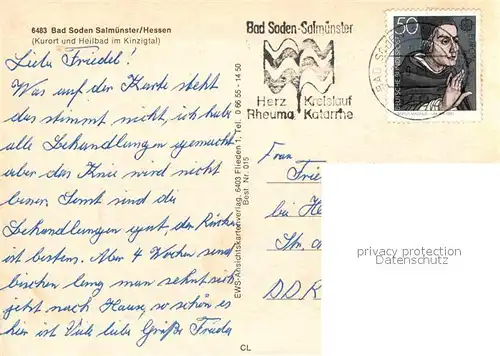 6483 Bad Soden Salmünster/Hessen
(Kurort und Heilbad im Kinzigtal)
Liebe Friedel!
Was auf der Karte steht
das stimmt nicht, ich hab
alle Behandlungen gemacht
aber das Knie wird nicht
besser. Sonst sind die
Behandlungen gut, der Rücken
ist bestens. Aber 4 Wochen sind
bischen lang man sehnt sich
jetzt nach Hause, so schön es
hier ist Viele liebe Grüße Frieda
EWS-Ansichtskartenverlag, 6403 Flieden 1, Tel. 0 66 55 - 14 50
Best. Nr. 015
CL
Bad Soden-Salmünster
Herz Kreislauf
Rheuma Katarrhe
50
DEUTSCHE BUNDESPOST
BAD SO
Frau
Frie
bei He
Str.
DDR
privacy protection
Datenschutz